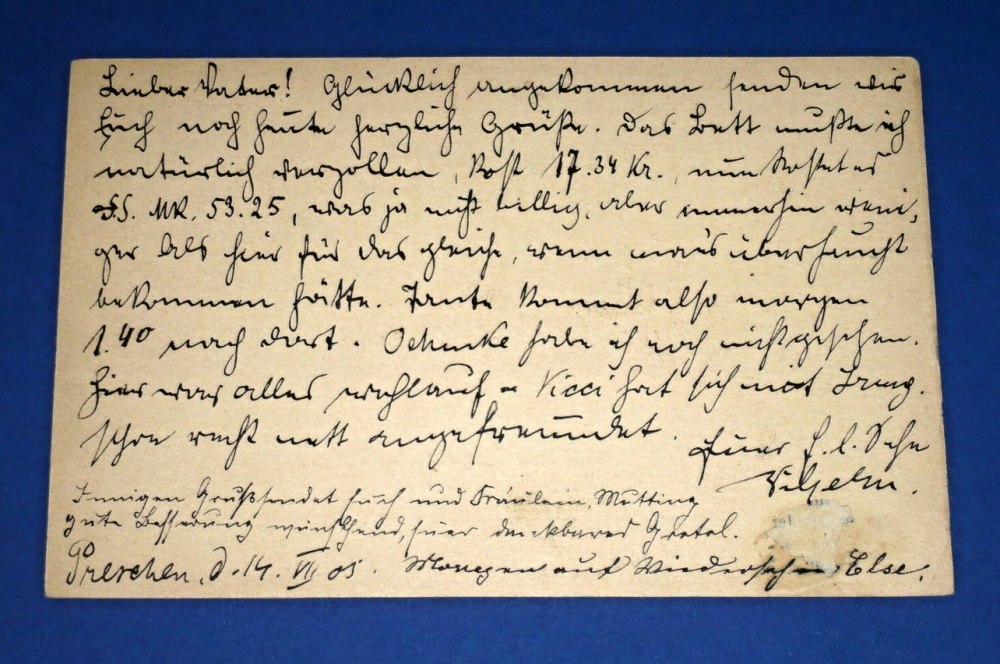 Lieber Vater! Glücklich angekommen senden wir
Euch noch heute herzliche Grüße. Das Bett mußte ich
natürlich verzollen, Kost 17.34 Kr., nun kostet es
MK. 53.25, was ja nicht billig, aber immerhin weni-
ger als hier für das gleiche, wenn man's überhaupt
bekommen hätte. Tante kommt also morgen
1.40 nach dort. habe ich noch nicht gesehen.
Hier war alles wohlauf Vicci hat sich mit
schon recht nett angefreundet. Euer Sohn
Wilhelm.
Innigen Gruß sendet Euch und Fräulein, Mutting
gute Besserung wünschend, Euer dankbares Gretel.
d. 14. VII 05. Morgen auf Wiedersehen Else.